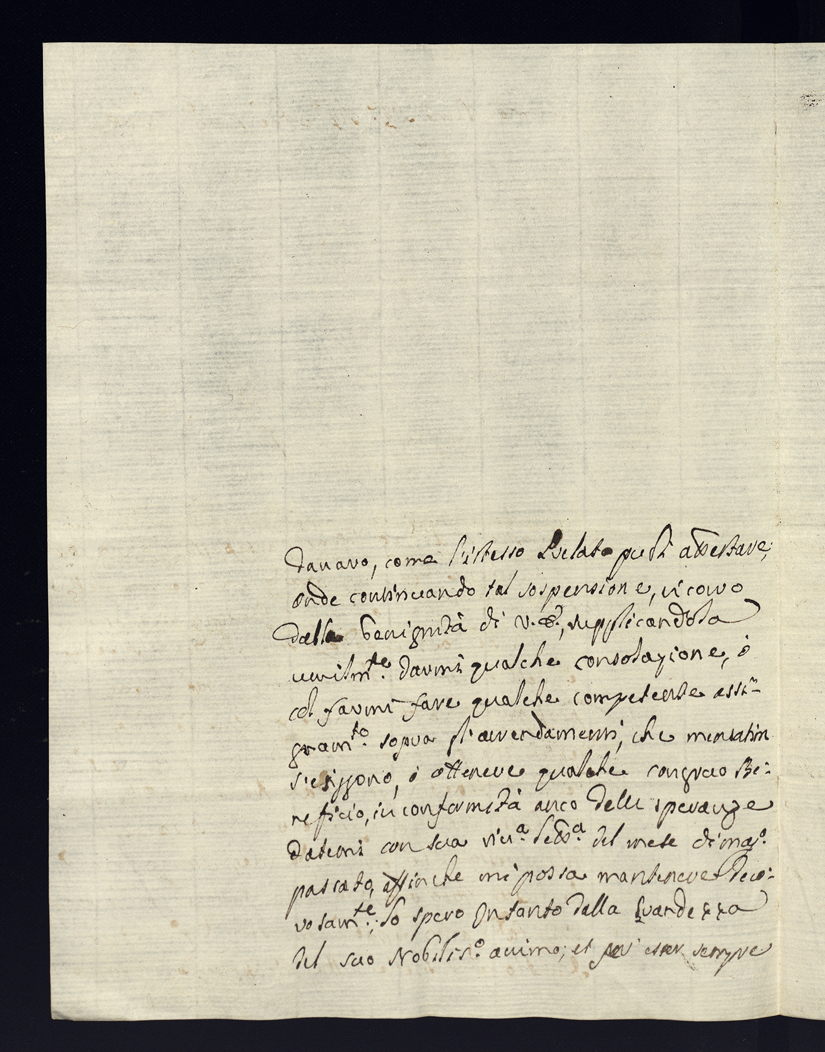 danaro, come l'istesso Prelato può attestare;
onde continuando tal sospensione, ricorro
dalla benignità di V. E., supplicandola
umilm.te darmi qualche consolazione, ò
col farmi fare qualche competente assi-
gnam.to sopra gl'arrendamenti, che menstatim
s'esiggono, ò ottenere qualche congruo Be-
neficio, in conformità anco delle speranze
datemi con sua del mese di mag.o
passato, affinche mi possa mantenere deco-
rosam.te; lo spero Intanto dalla Grandezza
del suo Nobilis.o animo; et per esser sempre